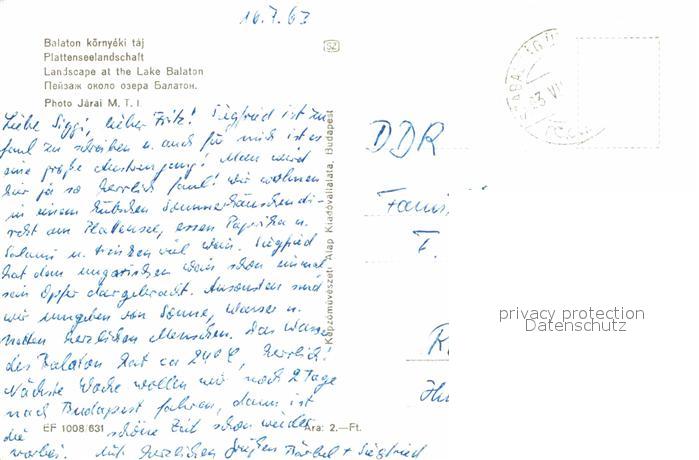 16.7.63
Balaton környéki táj
Plattenseelandschaft
Landscape at the Lake Balaton
Пейзаж около озера Балатон.
Photo Járai M. T. I.
SZ
Liebe Siggi, lieber Fritz! Siegfried ist zu
faul zu schreiben u. auch für mich ist es
eine große Anstrengung! Man wird
hier ja so herrlich faul! Wir wohnen
in einem hübschen Sommerhäuschen di-
rekt am Plattensee, essen Paprika u.
Salami u. trinken viel Wein. Siegfried
hat dem ungarischen Wein schon einmal
sein Opfer dargebracht. Ansonsten sind
wir umgeben von Sonne, Wasser u.
netten herzlichen Menschen. Das Wasser
des Balaton hat ca 24° C, herrlich!
Nächste Woche wollen wir noch 2 Tage
nach Budapest fahren, dann ist
die schöne Zeit schon wieder
vorbei. Mit herzlichen Grüßen Bärbel + Siegfried
EF 1008/631
Ára: 2.-Ft.
Képzőművészeti Alap Kiadóvállalata, Budapest
DDR
Fami
F.
privacy protection
Datenschutz